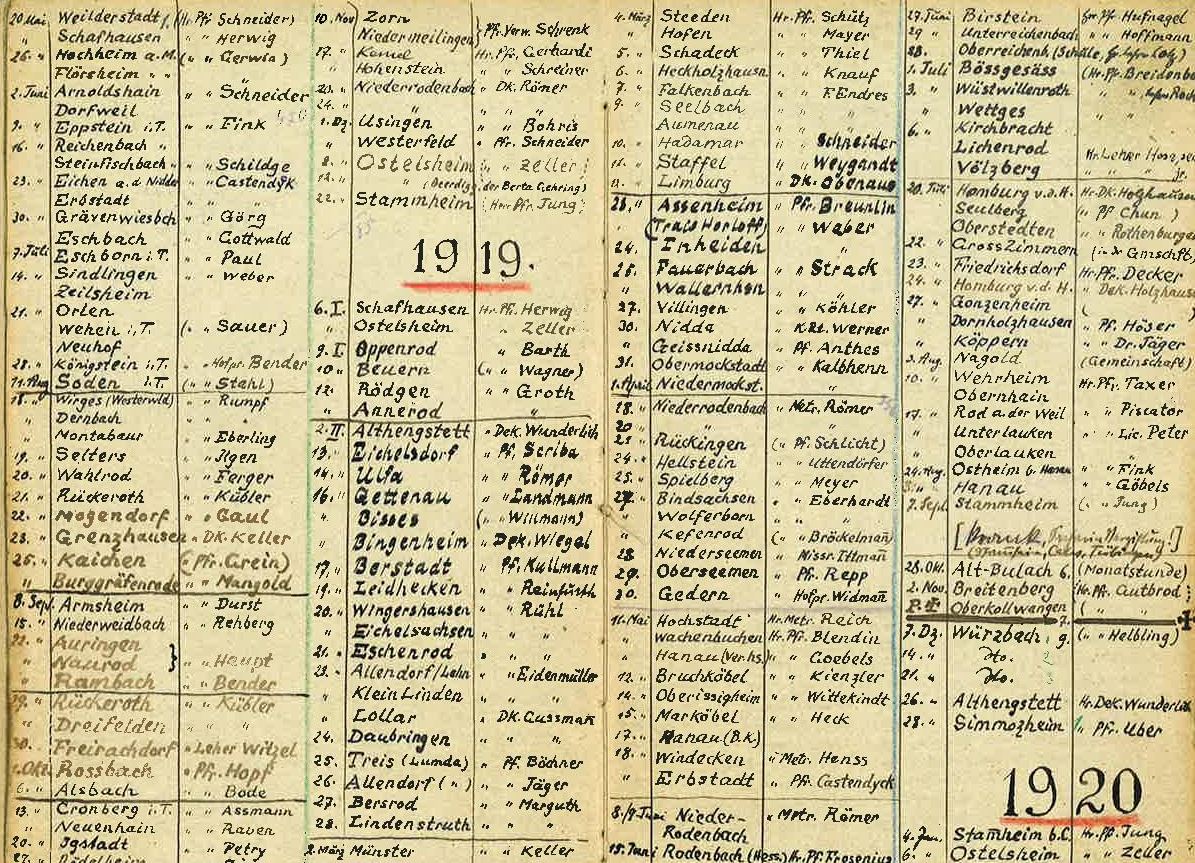 20 Mai Weilderstadt (Hr. Pf. Schneider)
" Schafhausen " " Herwig
26. " Hochheim a.M. ( " Gerwin)
Flörsheim " "
2. Juni Arnoldshain " " Schneider
Dorfweil
9. " Eppstein i.T. " " Fink
16. " Reichenbach "
Steinfischbach " " Schildge
23. " Eichen a.d. Nidder " " Castendyk
Erbstadt " "
30. " Grävenwiesbch " " Görg
Eschbach " " Gottwald
7. Juli Eschborn i.T. " " Paul
14. " Sindlingen " " Weber
Zeilsheim
21. " Orlen
Wehen i.T. ( " " Sauer)
Neuhof
28. " Königstein i.T. " Hofpr. Bender
11. Aug Soden i.T. ( " " Stahl)
18. " Wirges (Westerwld) " " Rumpf
" Dernbach "
" Montabaur " " Eberling
19. " Selters " " Ilgen
20. " Wahlrod " " Ferger
21. " Rückeroth " " Kübler
22. " Mogendorf " " Gaul
23. " Grenzhausen " DK. Keller
25. " Kaichen (Pfr. Grein)
" Burggräfenrode " " Mangold
8. Sep. Armsheim " " Durst
15. " Niederweidbach " " Rehberg
22. " Auringen
" Naurod } " " Haupt
" Rambach " " Bender
29. " Rückeroth " " Kübler
" Dreifelden " "
30. " Freirachdorf " Leher Witzel
1. Okt. Rossbach " Pfr. Hopf
6. " Alsbach " Bode
13. " Cronberg i.T. " " Assmann
" Neuenhain " " Raven
20. " Igstadt " " Petry
27. "
10. Nov Zorn
Niedermeilingen } Pfr. Verw. Schrenk
17. " Kemel Hr. Pfr. Gerhardi
" Hohenstein " " Schreiner
20. " Niederrodenbach " DK. Römer
24. " " "
1. Dz. Usingen " " Bohris
" Westerfeld " Pfr. Schneider
8. " Ostelsheim " " Zeller
12. " " (Beerdig. der Berta Gehring)
22. " Stammheim (Herr Pfr. Jung)
1919.
6. I. Schafhausen Hr. Pf. Herwig
" Ostelsheim " Zeller
9. I. Oppenrod " Barth
10 " Beuern ( " Wagner)
12. Rödgen " Groth
" Annerod "
2. II. Althengstett " Dek. Wunderlich
13. " Eichelsdorf " Pf. Scriba
14. " Ulfa " Römer
16. " Gettenau " Landmann
" Bisses ( " Willmann)
" Bingenheim " Dek. Wiegel
17. " Berstadt " Pf. Kullmann
19. " Leidhecken " Reinfurth
20. " Wingershausen " Rühl
" Eichelsachsen " "
21. " Eschenrod " "
23. " Allendorf/Lahn " " Eidenmüller
" Klein Linden " "
" Lollar " DK. Gussman
24. " Daubringen " "
25. " Treis (Lumda) " Pf. Böchner
26. " Allendorf ( " ) " " Jäger
27. " Bersrod " " Marguth
28. " Lindenstruth " "
2. März Münster " " Keller
4. März Steeden Hr. Pf. Schütz
" Hofen " " Mayer
5. " Schadeck " " Thiel
6. " Heckholzhausn " " Knauf
7. " Falkenbach " " FEndres
9. " Seelbach " "
Aumenau " "
10. " Hadamar Schneider
11. " Staffel " " Weygandt
12. " Limburg " DK. Obenaus
23. " Assenheim " Pfr. Breunlin
" (Trais Horloff) " " Weber
24. " Inheiden " "
25. " Fauerbach " " Strack
" Wallernhsn " "
27. " Villingen " " Köhler
30. " Nidda " KRt. Werner
" Geissnidda " Pf. Anthes
31. " Obermockstadt " " Kalbhenn
1. April Niedermockst. "
18. " Niederrodenbach " Metr. Römer
20 " "
21 " Rückingen (Pf. Schlicht)
24. " Hellstein " " Uttendörfer
25. " Spielberg " " Meyer
27. " Bindsachsen " " Eberhardt
" Wolferborn " "
" Kefenrod ( " Bröckelmañ)
28 " Niederseemen " Missr. Ittmañ
29. " Oberseemen " Pf. Repp
30. " Gedern " Hofpr. Widmañ
11. Mai Hochstadt Hr. Metr. Reich
" Wachenbuchen Hr. Pf. Blendin
" Hanau (Ver.hs.) " " Goebels
12. " Bruchköbel " " Kienzler
14. " Oberissigheim " " Wittekindt
15. " Marköbel " " Heck
17. " Hanau (B.K.) " "
18. " Windecken " Metr. Henss
" Erbstadt " Pfr. Castendyck
8./9. Juni Nieder-
Rodenbach " Metr. Römer
15. Juni Rodenbach (Hess.) Hr. Pf. Frosenius
27. Juni Birstein Hr. Pfr. Hufnagel
29 " Unterreichenbach " " Hoffmann
30. Oberreichenb. (Schule,
1. Juli Bössgesäss (Hr. Pf. Breidenba
3. " Wüstwillenroth " "
" Wettges " "
6. " Kirchbracht "
Lichenrod
Völzberg Hr. Leher
20. Juli Homburg v.d.H. Hr. DK. Holzhausen
Seulberg ( " Pf Chun )
Oberstedten " " Rothenburger
22. " Gross Zimmern (in d. Gmschft)
23. " Friedrichsdorf Hr. Pfr. Decker
24. " Homburg v.d.H. " Dek. Holzhaus
27. " Gonzenheim (
" Dornholzhausen " Pf. Höser
" Köppern " " Dr. Jäger
3. Aug. Nagold (Gemeinschaft)
10. " Wehrheim Hr. Pfr. Taxer
Obernhain
17. " Rod a. der Weil " " Piscator
" Unterlauken " " Lic. Peter
" Oberlauken
24. Aug. Ostheim b. Hanau " " Fink
" Hanau " " Göbels
7. Sept. Stammheim ( " Jung )
28. Okt. Alt-Bulach 6. (Monatstunde)
2. Nov. Breitenberg (Hr. Pfr. Gutbrod
Oberkollwangen 7. ( " "
7. Dz. Würzbach 9. ( " " Helbling)
14. " Do.
21. " Do.
26. " Althengstett Hr. Dek. Wunderlich
28. " Simmozheim " Pfr. Uber
1920
4. Jan. Stam̃heim b.C. Hr. Pf. Jung
6. " Ostelsheim " " Zeller